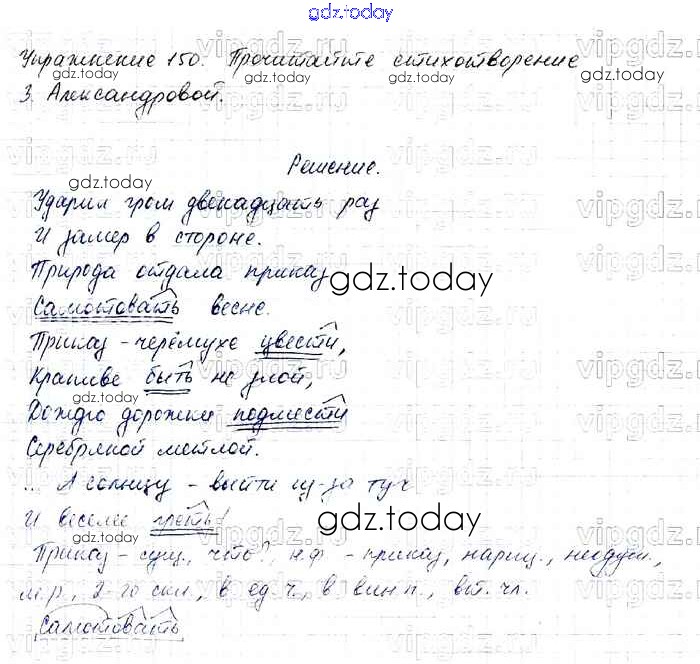 gdz.today
Упражнение 150. Прочитайте стихотворение
З. Александровой.
Решение.
Ударил гром двенадцать раз
И замер в стороне.
Природа отдала приказ
Салютовать весне.
Приказ - черёмухе цвести,
Крапиве быть не злой,
Дождю дорожки подмести
Серебряной метлой.
... А солнцу - выйти из-за туч
И веселей греть!
Приказ - сущ., что?, н.ф - приказ, нариц., неодуш.,
м.р., 2-го скл., в ед.ч., в вин.п., вт. чл.
Салютовать